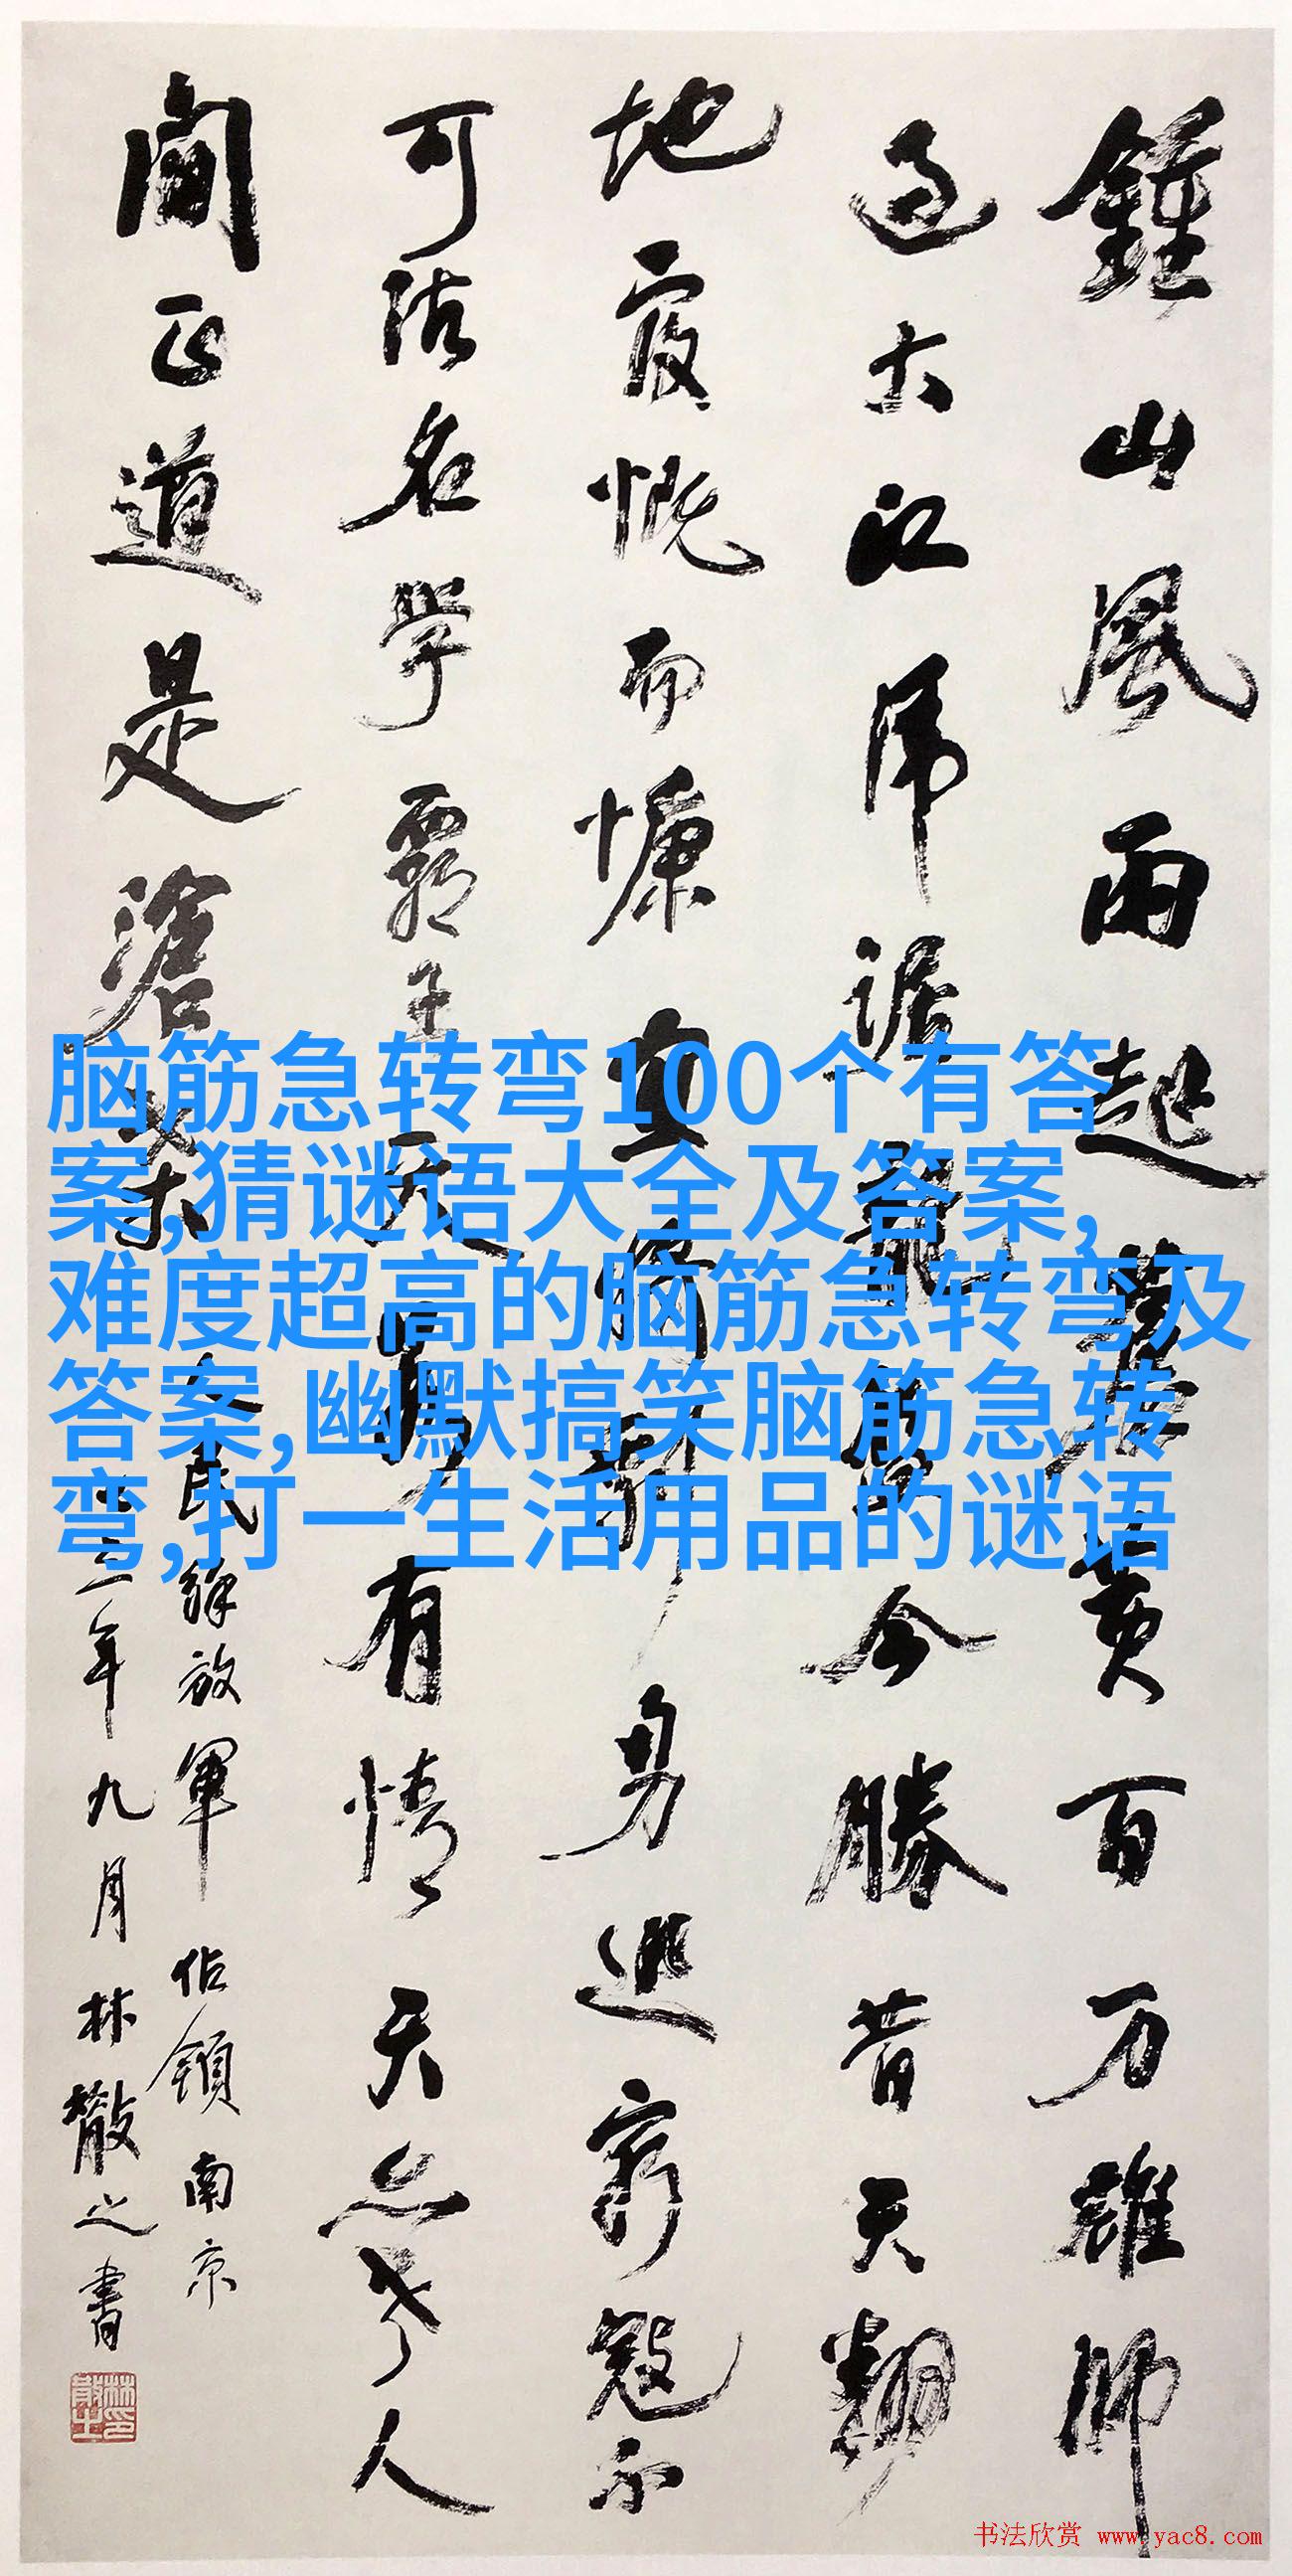 鍾山風雨起蒼黄百万雄師
過大江虎踞龍盤今勝昔天翻
地覆慨而慷宜將剩勇追窮寇不
可沽名學霸王天若有情天亦老人
間正道是滄桑
人民解放軍佔領南京
三年九月林散之書
脑筋急转弯100个有答
案,猜谜语大全及答案,
难度超高的脑筋急转弯及
答案,幽默搞笑脑筋急转
弯,打一生活用品的谜语
书法欣赏 www.yac8.com